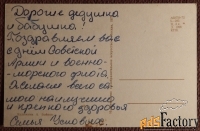 Дорогие дедушка
и бабушка!
Поздравляем вас
с днём Советской
Армии и военно-
морского флота.
Желаем всего са-
мого наилучшего
и крепкого здоровья
Семья
gdsFactory